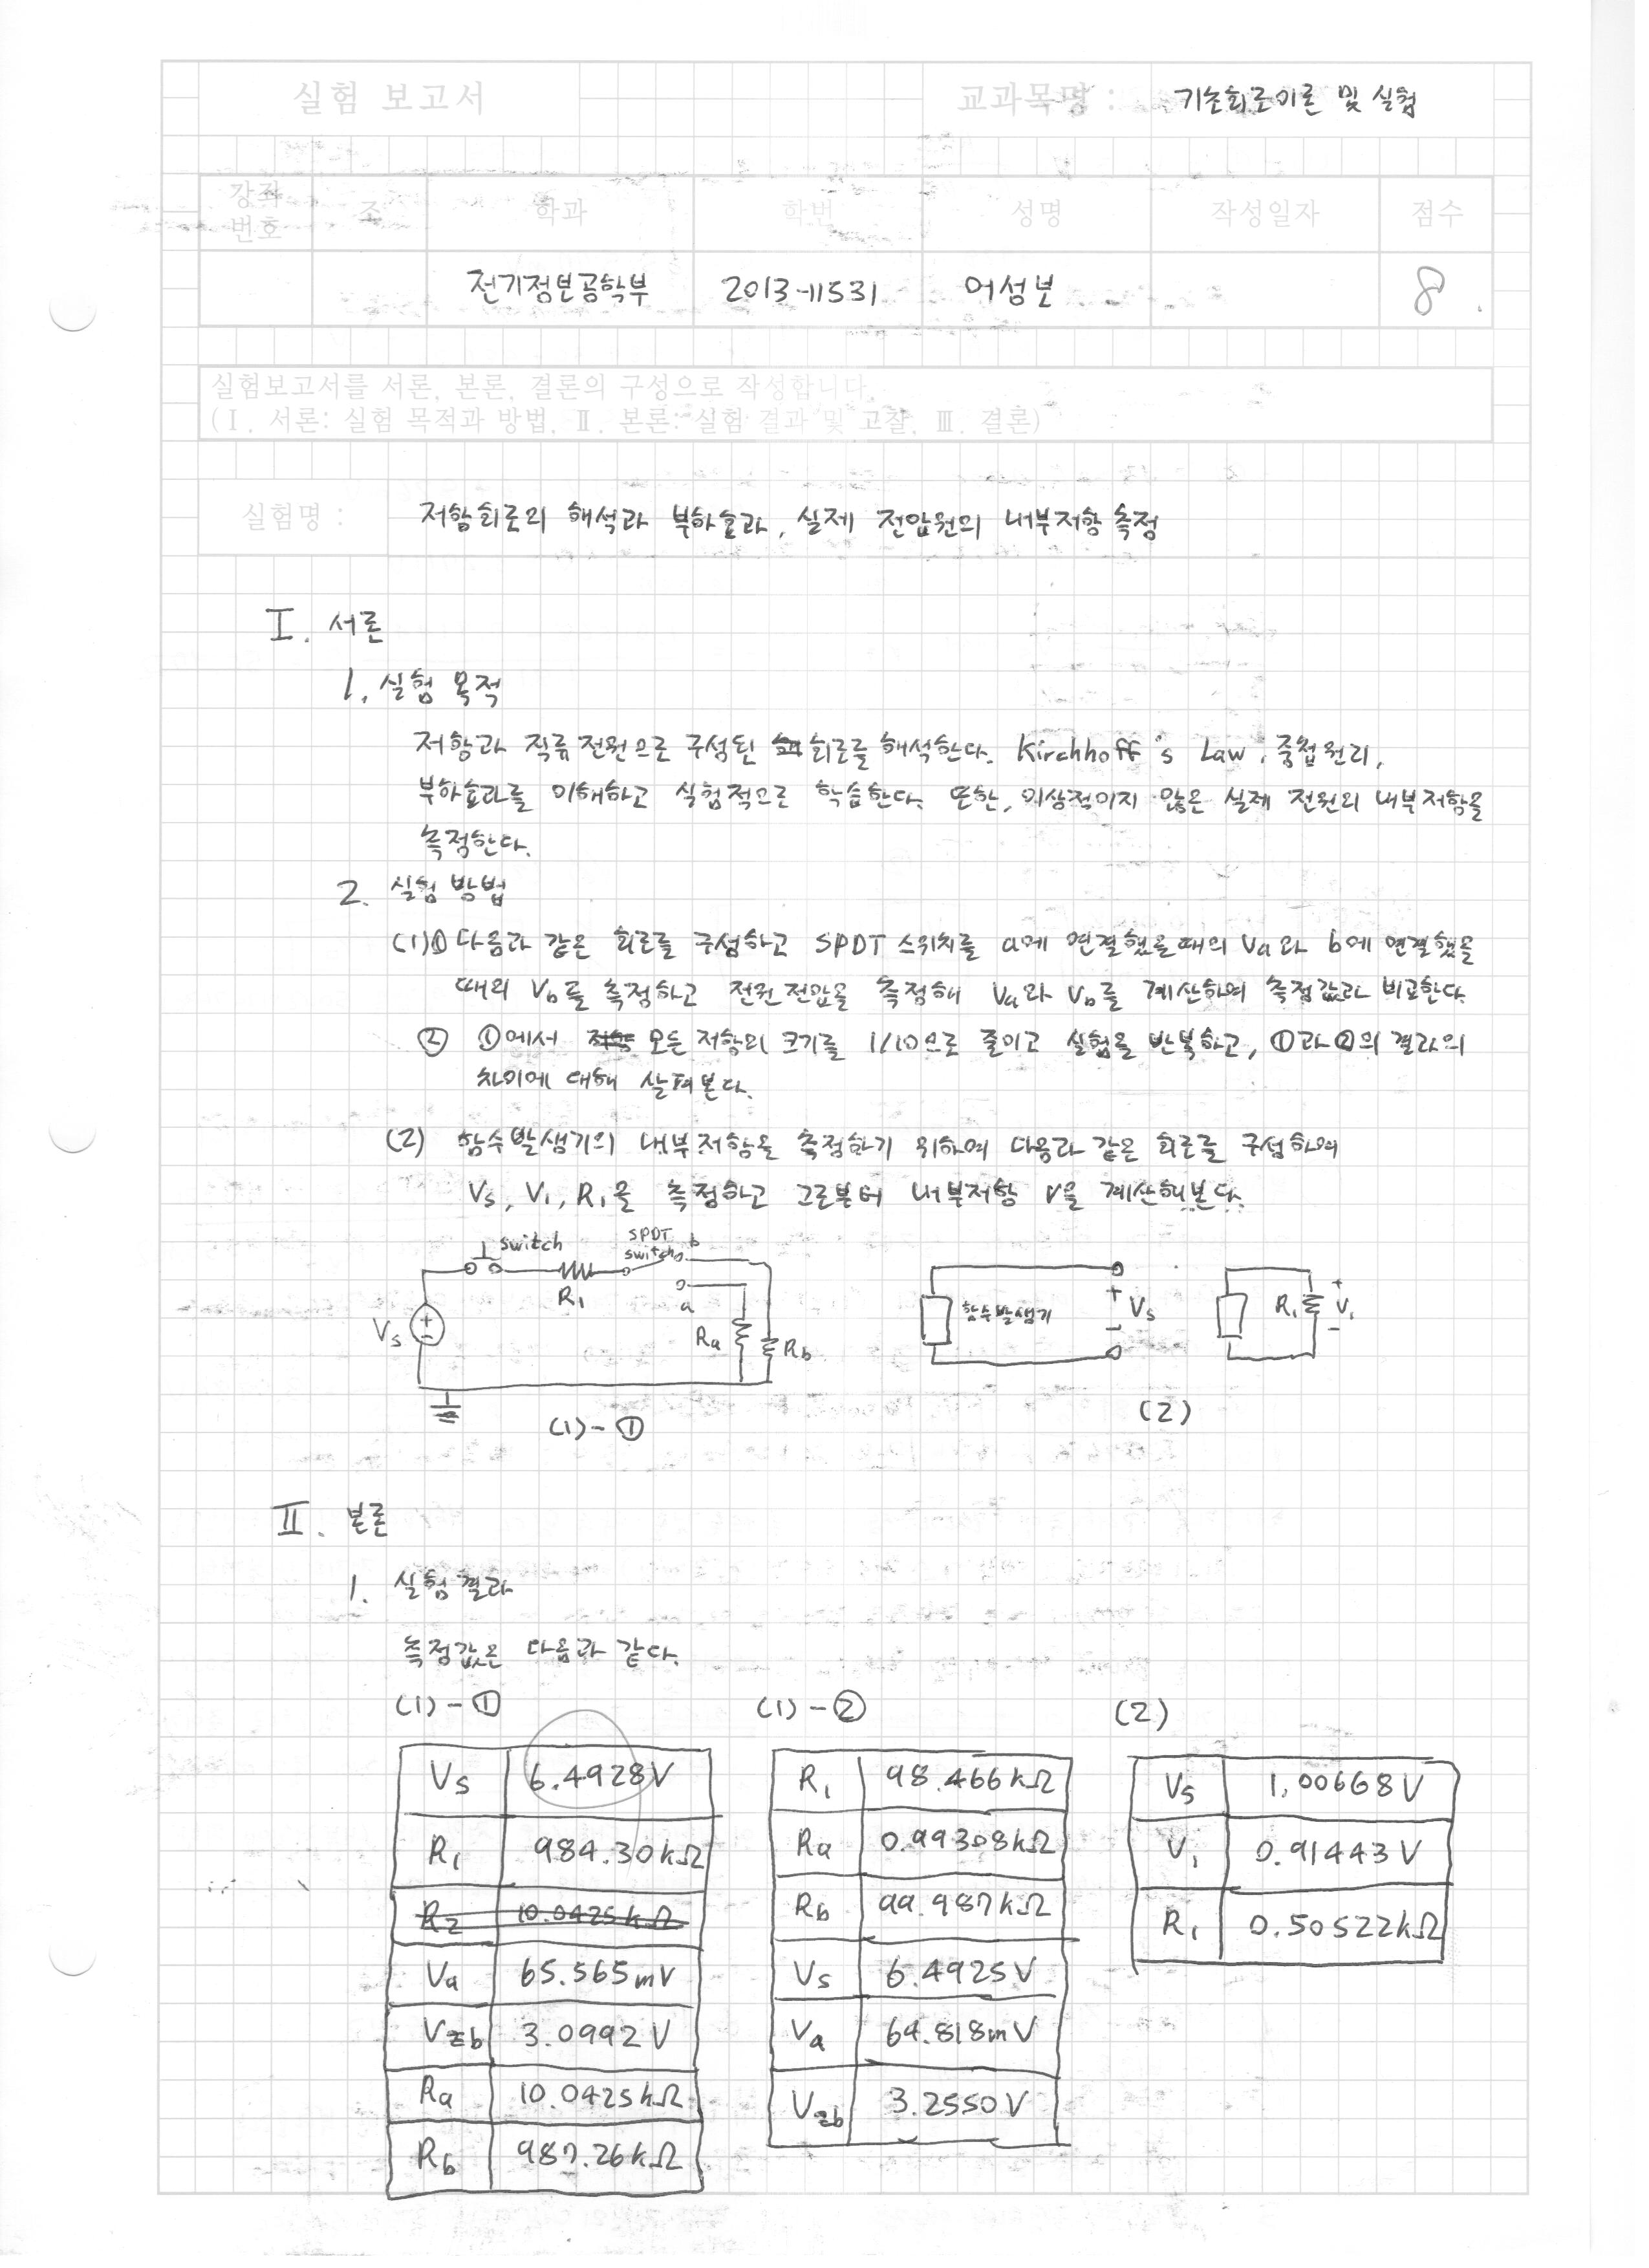 실험 보고서
교과목명 : 기초회로이론 및 실험
강좌번호 조 학과 학번 성명 작성일자 점수
전기정보공학부 2013-11531 어성보 8
실험보고서를 서론, 본론, 결론의 구성으로 작성합니다.
(Ⅰ. 서론: 실험 목적과 방법, Ⅱ. 본론: 실험 결과 및 고찰, Ⅲ. 결론)
실험명 : 저항회로의 해석과 부하효과, 실제 전압원의 내부저항 측정
Ⅰ. 서론
1. 실험 목적
저항과 직류전원으로 구성된 회로를 해석한다. Kirchhoff's Law, 중첩원리,
부하효과를 이해하고 실험적으로 학습한다. 또한, 이상적이지 않은 실제 전원의 내부저항을
측정한다.
2. 실험 방법
(1)① 다음과 같은 회로를 구성하고 SPDT 스위치를 a에 연결했을 때의 Va와 b에 연결했을
때의 Vb를 측정하고 전원전압을 측정해 Va와 Vb를 계산하여 측정값과 비교한다.
② ①에서 모든 저항의 크기를 1/10으로 줄이고 실험을 반복하고, ①과 ②의 결과의
차이에 대해 살펴본다.
(2) 함수발생기의 내부저항을 측정하기 위하여 다음과 같은 회로를 구성하여
Vs, V1, R1을 측정하고 그로부터 내부저항 r을 계산해본다.
switch SPDT switch b
R1 a
Vs + - Ra Rb
(1)-①
함수발생기 + Vs - R1 + V1 -
(2)
Ⅱ. 본론
1. 실험결과
측정값은 다음과 같다.
(1)-① (1)-② (2)
Vs 6.4928V
R1 984.30kΩ
R2 10.0425kΩ
Va 65.565mV
Vb 3.0992V
Ra 10.0425kΩ
Rb 987.26kΩ
R1 98.466kΩ
Ra 0.99308kΩ
Rb 99.987kΩ
Vs 6.4925V
Va 64.818mV
Vb 3.2550V
Vs 1.00668V
V1 0.91443V
R1 0.50522kΩ